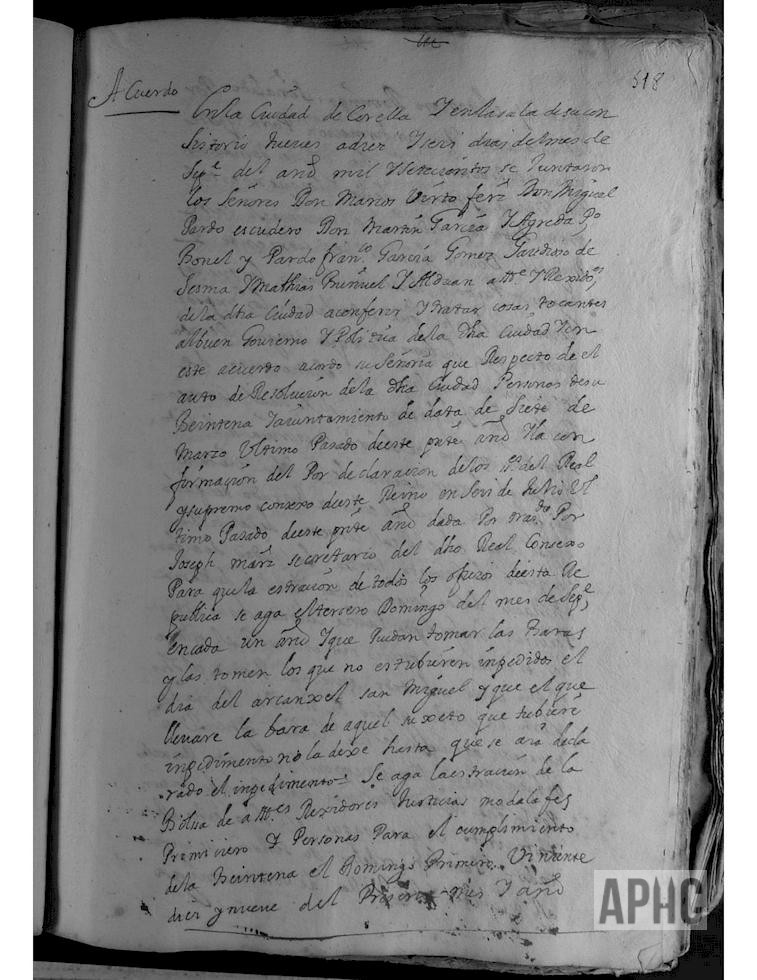 518
Acuerdo
En la Ciudad de Corella Y en la sala de su con
sistorio Jueves a diez Y seis dias del mes de
Sepe. del año mil Setecientos se Juntaron
los Señores Don Marcos Virto ferz Don Miguel
Pardo escudero Don Martin Garcia Y Agreda Po
Bonel y Pardo franco Garcia Gomez Gaudioso de
Sesma Y Mathias Buñuel Y Alduan alles Y Rexidores
de la dha Ciudad a conferir Y tratar cosas tocantes
al buen Gouierno Y Politica de la dha Ciudad Y en
este acuerdo acordo su Señoria que Respecto de el
auto de Resolucion de la dha Ciudad Personas de su
Beintena Y aiuntamiento de data de Siete de
Marzo Ultimo Pasado de este preste año Y la con
firmacion del Por declaracion de los ss. del Real
y supremo consexo de este Reino en Seis de Julio Ul
timo Pasado de este preste año dada Por trasdo Por
Joseph marz secretario del dho Real Consexo
Para que la estracion de todos los ofizios de esta Re
publica se aga el tercero Domingo del mes de Sepe
en cada un año Y que Puedan tomar las Baras
y las tomen los que no estubieren inpedidos el
dia del arcanxel san Miguel y que el que
lleuare la bara de aquel suxeto que tubiere
inpedimento no la dexe hasta que se aia decla
rado el inpedimento Se aga la estracion de la
Bolsa de alles Rexidores Justicias
Primiciero Y Personas Para el cumplimiento
de la Beintena el Domingo Primero Viniente
diez y nueve del Presente mes Y año
APHC